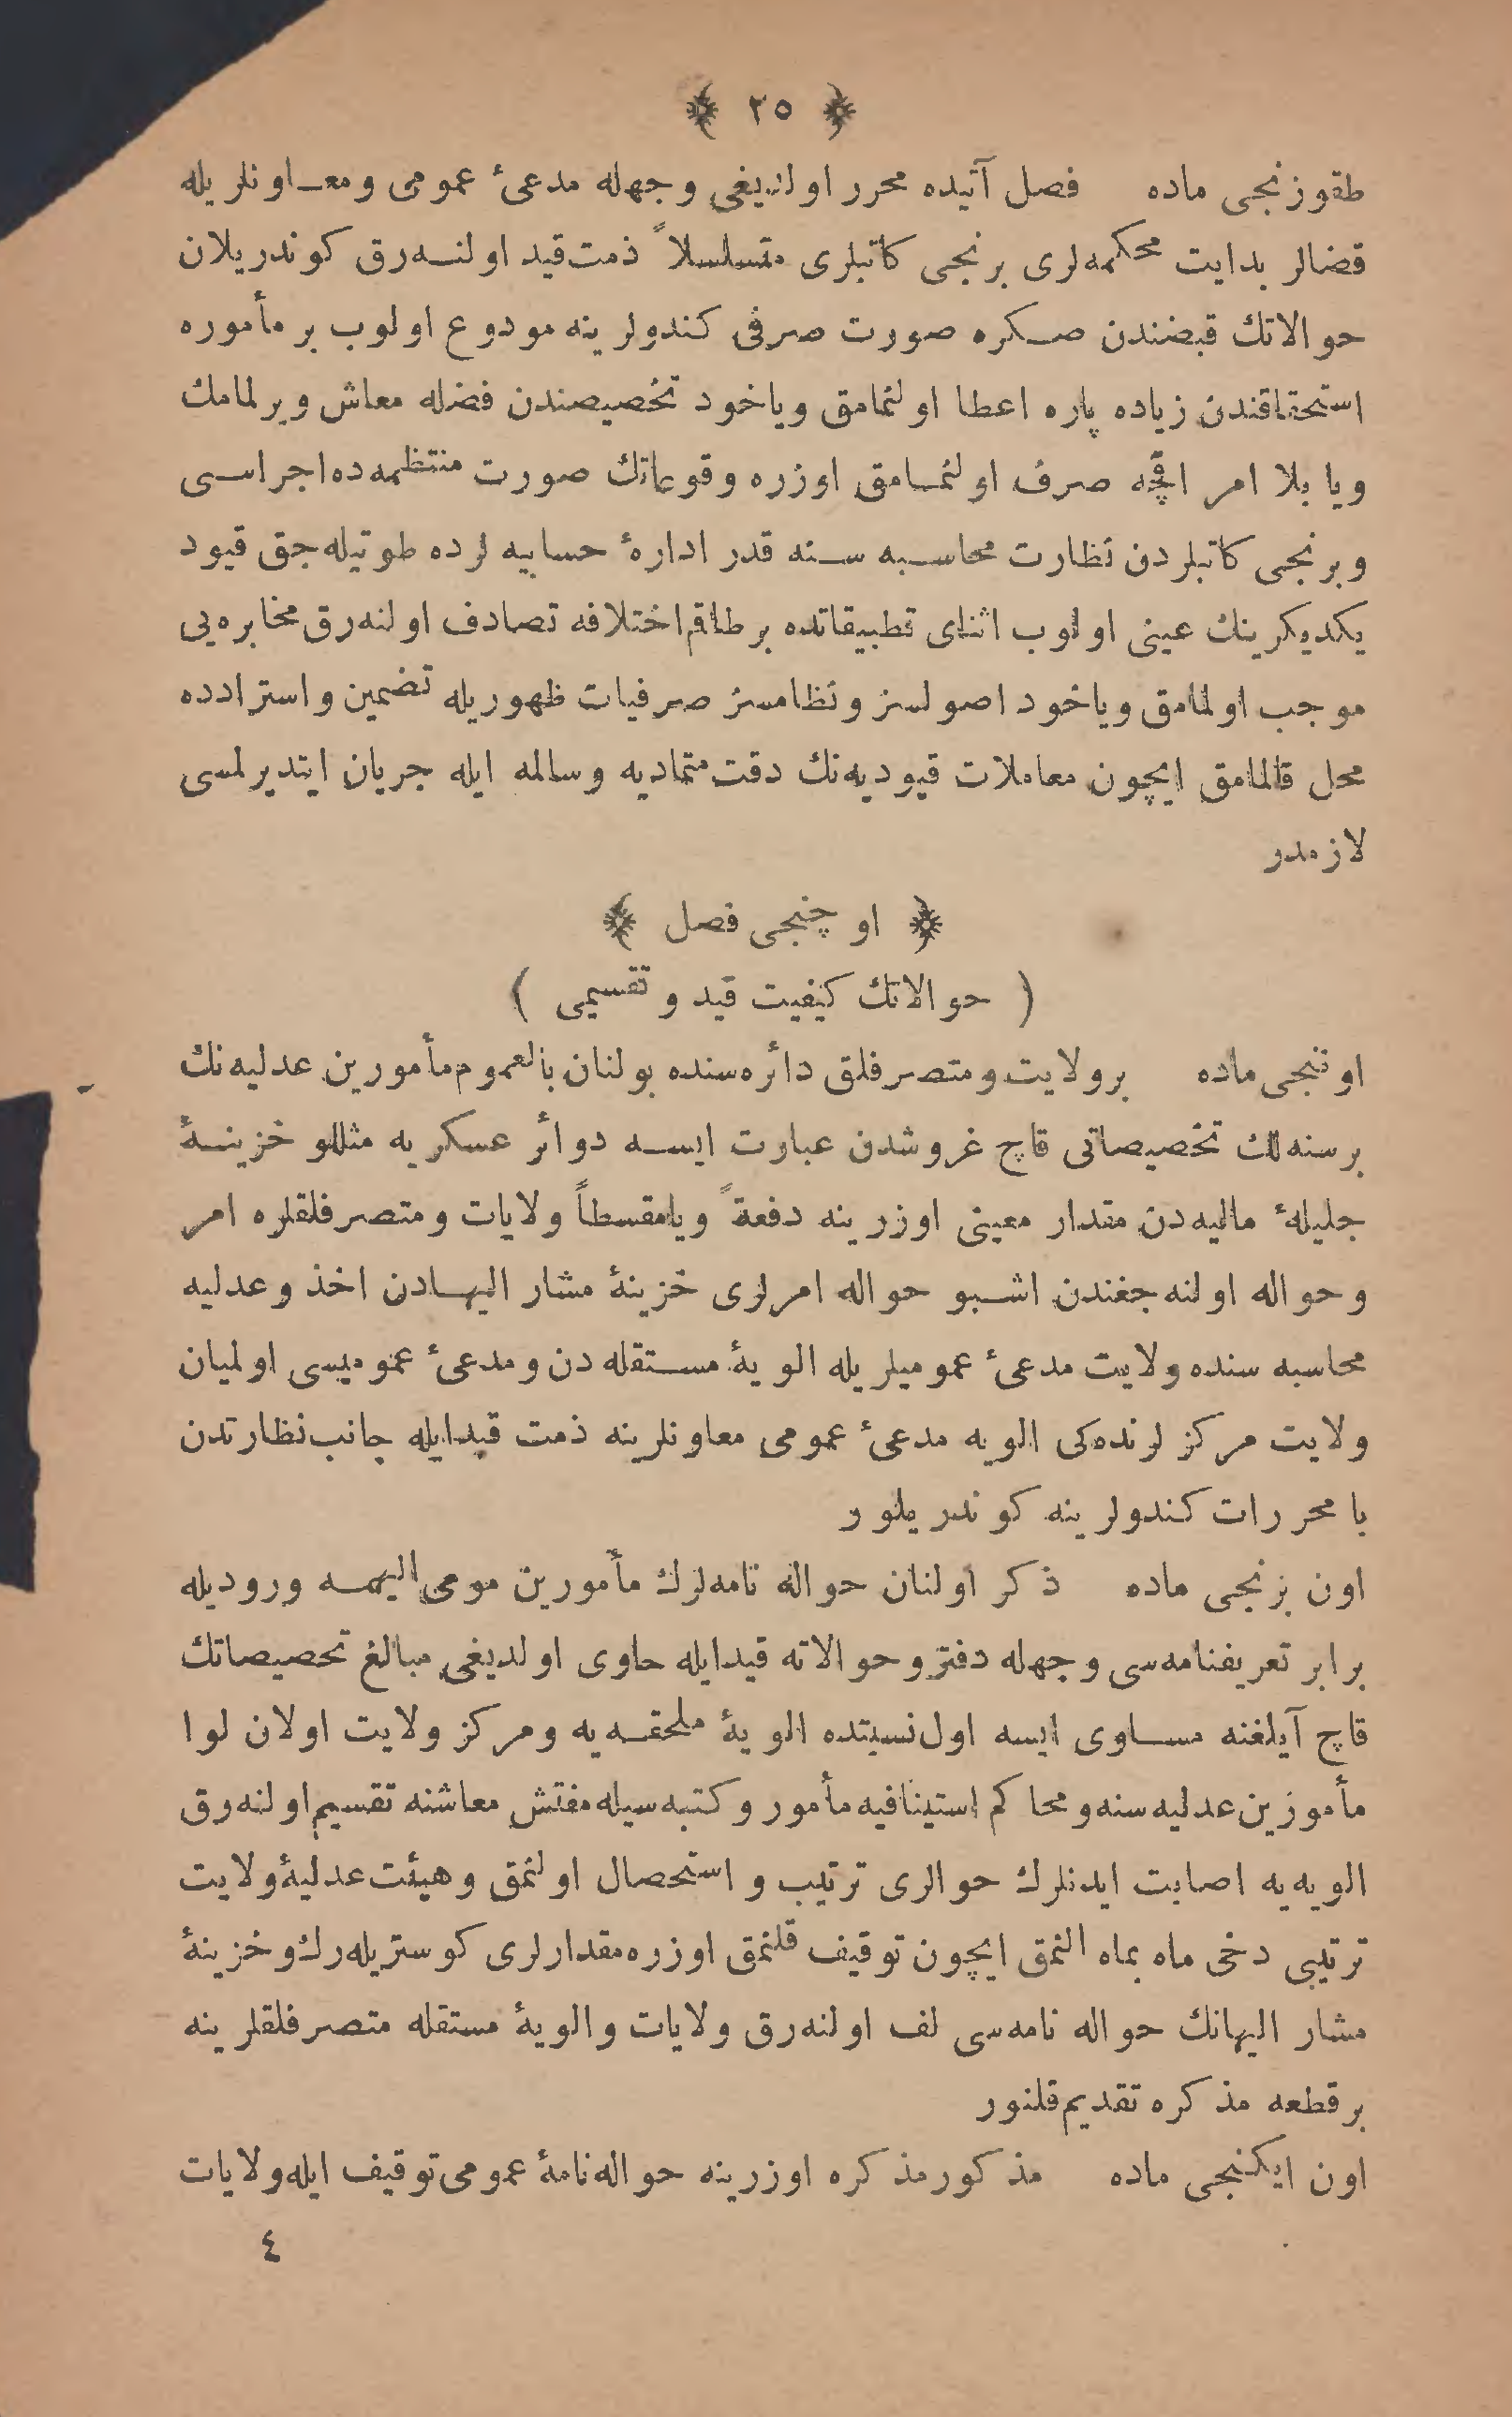 ﴿ ٢٥ ﴾
طقوزنجی ماده فصل آتیده محرر اولدیغی وجهله مدعیٔ عمومی ومعاونلریله
قضالر بدایت محکمه‌لری برنجی کاتبلری متسلسلاً ذمت قید اولنه‌رق کوندریلان
حوالاتك قبضندن صکره صورت صرفی کندولرینه مودوع اولوب بر مأموره
استحقاقندن زیاده پاره اعطا اولنمامق ویاخود تخصیصندن فضله معاش ویرلمامك
ویا بلا امر اقچه صرف اولنمامق اوزره وقوعاتك صورت منتظمه‌ده اجراسی
وبرنجی کاتبلردن نظارت محاسبه سنه قدر ادارهٔ حسابیه لرده طوتیله‌جق قیود
یکدیکرینك عینی اولوب اثنای تطبیقاتده برطاقم اختلافه تصادف اولنه‌رق مخابره‌یی
موجب اولمامق ویاخود اصولسز ونظامسز صرفیات ظهوریله تضمین واسترادده
محل قالمامق ایچون معاملات قیودیه‌نك دقت متمادیه وسالمه ایله جریان ایتدیرلسی
لازمدر
﴿ اوچنجی فصل ﴾
( حوالاتك کیفیت قید و تقسیمی )
اوننجی ماده برولایت ومتصرفلق دائره‌سنده بولنان بالعموم مأمورین عدلیه‌نك
برسنه‌لك تخصیصاتی قاچ غروشدن عبارت ایسه دوائر عسکریه مثللو خزینهٔ
جلیلهٔ مالیه‌دن مقدار معینی اوزرینه دفعةً ویامقسطاً ولایات ومتصرفلقلره امر
وحواله اولنه‌جغندن اشبو حواله امرلری خزینهٔ مشار الیهادن اخذ وعدلیه
محاسبه سنده ولایت مدعیٔ عمومیلریله الویهٔ مستقله‌دن ومدعیٔ عمومیسی اولمیان
ولایت مرکزلرنده‌کی الویه مدعیٔ عمومی معاونلرینه ذمت قیدایله جانب نظارتدن
با محررات کندولرینه کوندریلور
اون برنجی ماده ذکر اولنان حواله نامه‌لرك مأمورین مومی الیهمه ورودیله
برابر تعریفنامه‌سی وجهله دفتر وحوالاته قیدایله حاوی اولدیغی مبالغ تخصیصاتك
قاچ آیلغنه مساوی ایسه اول نسبتده الویهٔ ملحقه‌یه ومرکز ولایت اولان لوا
مأمورین عدلیه‌سنه ومحاکم استینافیه مأمور وکتبه‌سیله مفتش معاشنه تقسیم اولنه‌رق
الویه‌یه اصابت ایدنلرك حوالری ترتیب و استحصال اولنمق وهیئت عدلیهٔ ولایت
ترتیبی دخی ماه بماه النمق ایچون توقیف قلنمق اوزره مقدارلری کوستریله‌رك وخزینهٔ
مشار الیهانك حواله نامه‌سی لف اولنه‌رق ولایات والویهٔ مستقله متصرفلقلرینه
برقطعه مذکره تقدیم قلنور
اون ایکنجی ماده مذکور مذکره اوزرینه حواله‌نامهٔ عمومی توقیف ایله ولایات
٤